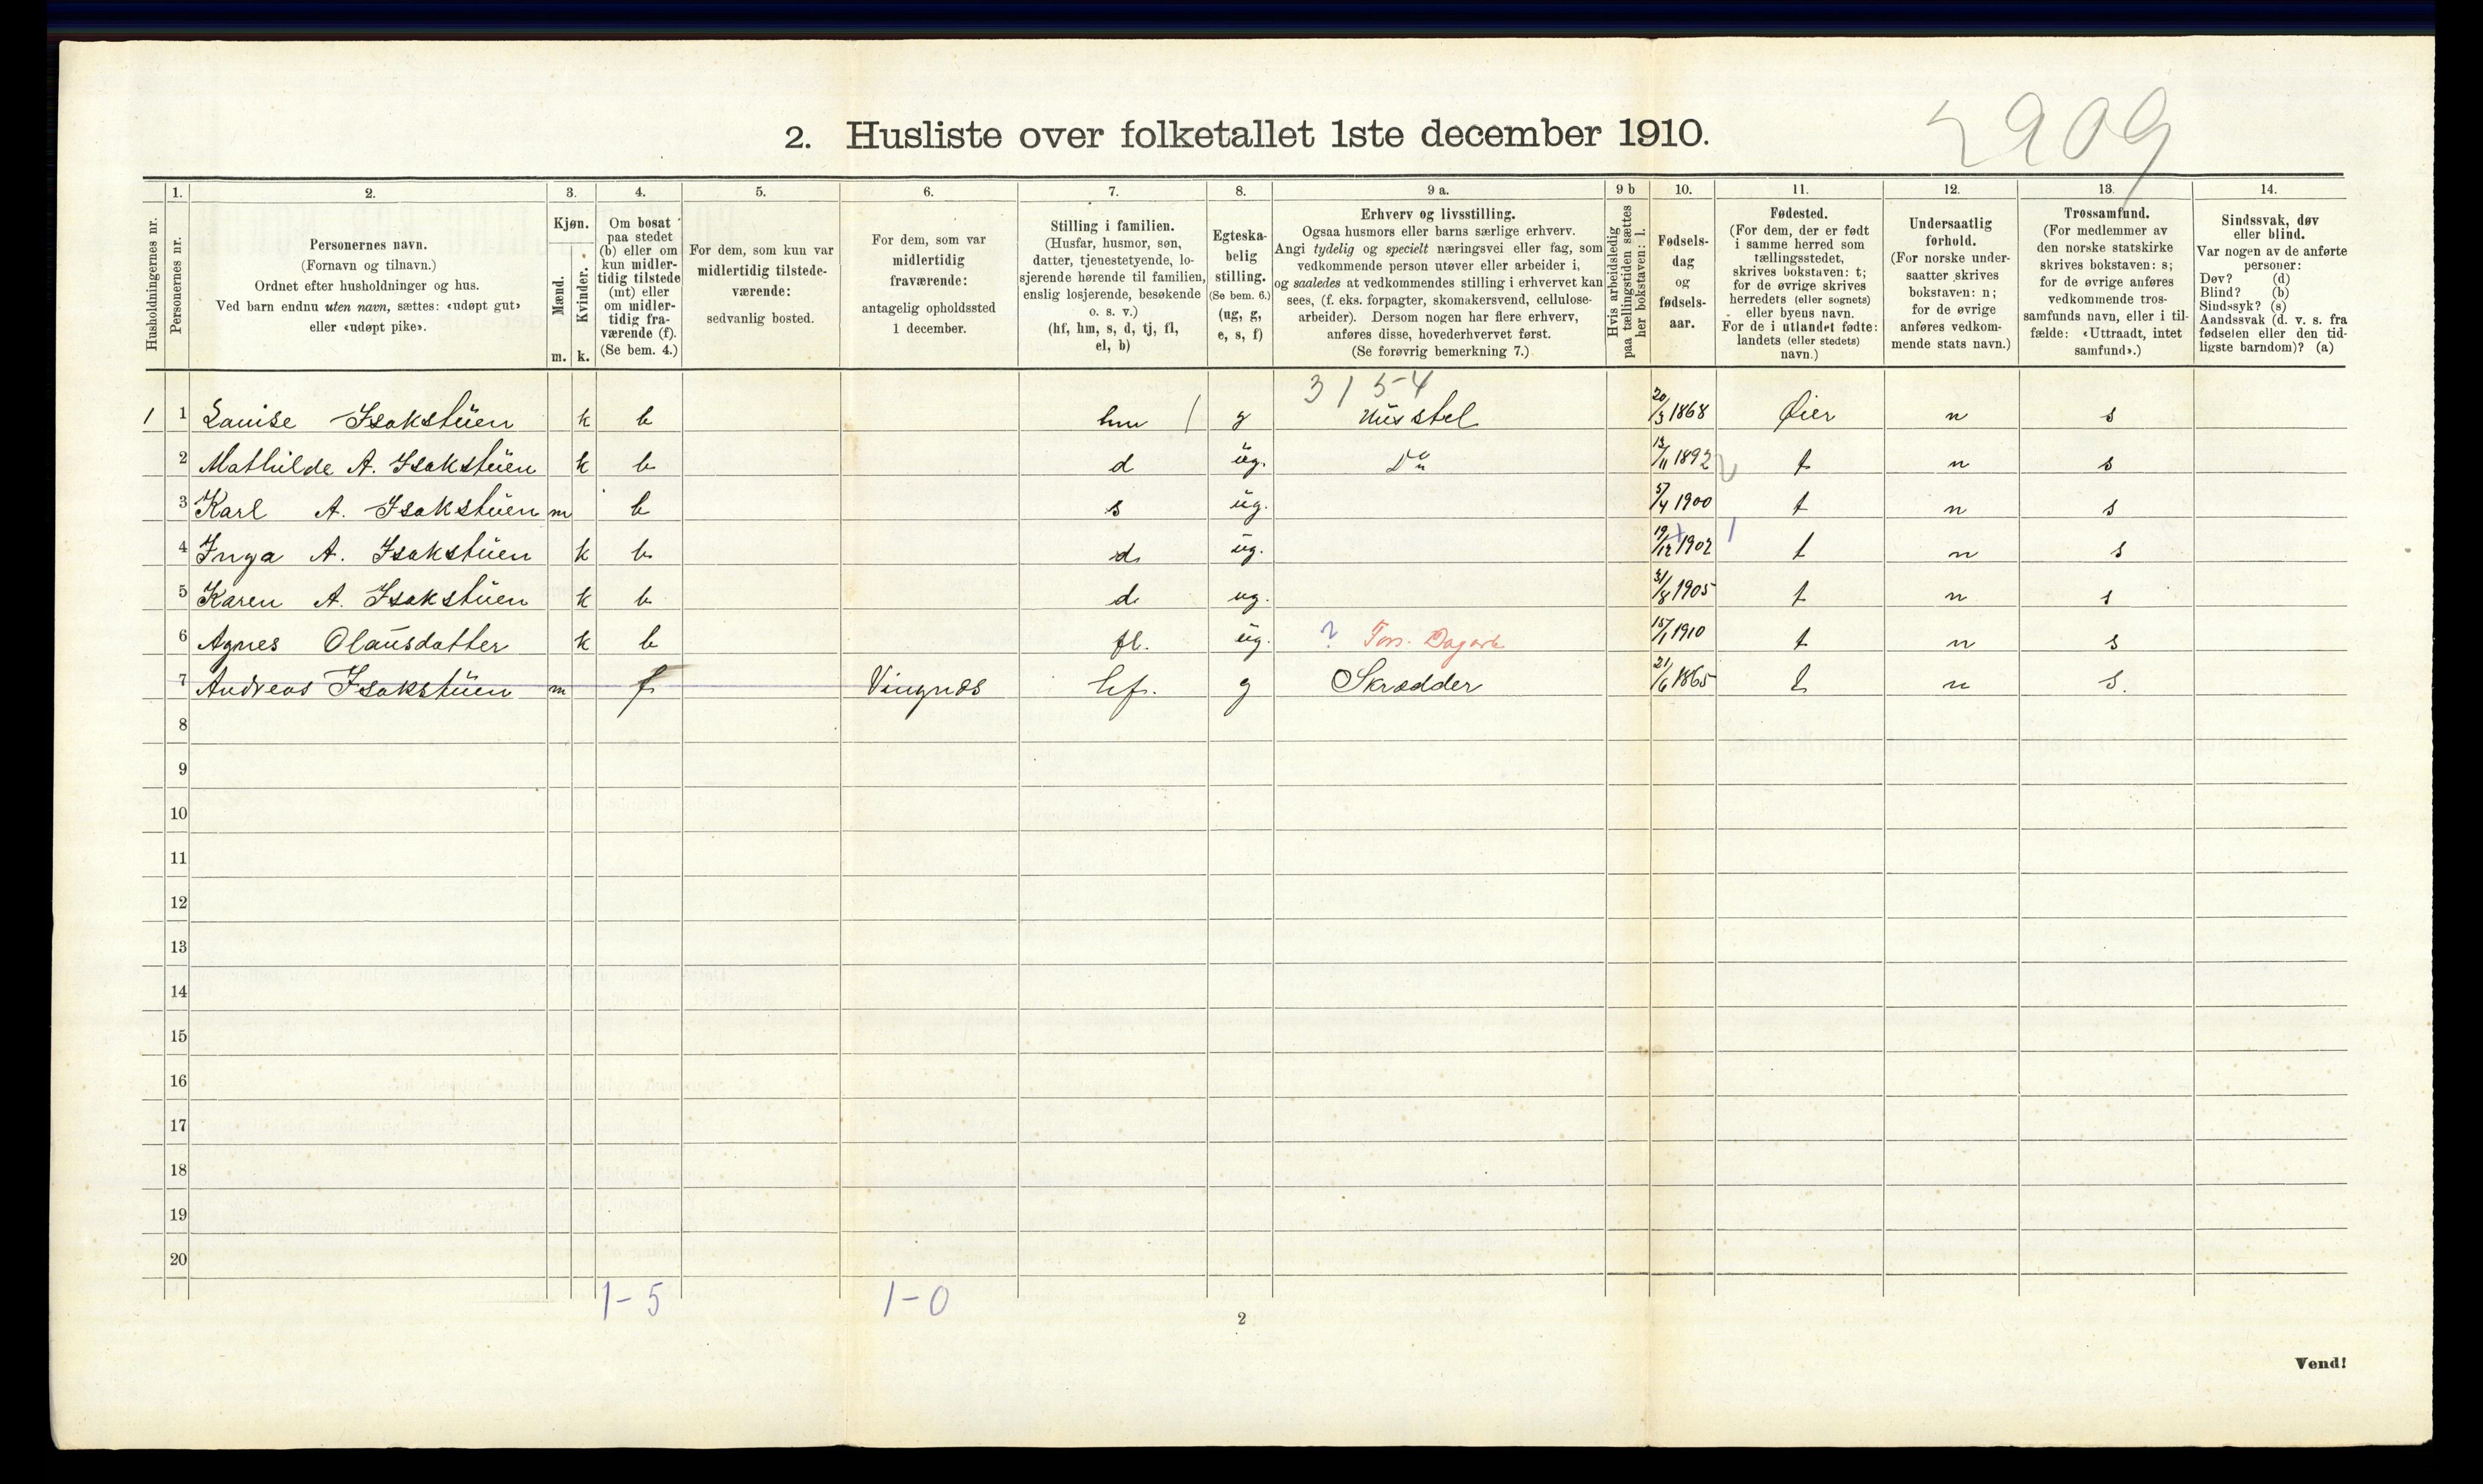 2909
2. Husliste over folketallet 1ste december 1910.
Husholdningernes nr.
1. Personernes nr.
2. Personernes navn. (Fornavn og tilnavn.) Ordnet efter husholdninger og hus. Ved barn endnu uten navn, sættes: «udøpt gut» eller «udøpt pike».
3. Kjøn. Mænd. m. Kvinder. k.
4. Om bosat paa stedet (b) eller om kun midlertidig tilstede (mt) eller om midlertidig fraværende (f). (Se bem. 4.)
5. For dem, som kun var midlertidig tilstedeværende: sedvanlig bosted.
6. For dem, som var midlertidig fraværende: antagelig opholdssted 1 december.
7. Stilling i familien. (Husfar, husmor, søn, datter, tjenestetyende, losjerende hørende til familien, enslig losjerende, besøkende o. s. v.) (hf, hm, s, d, tj, fl, el, b)
8. Egteskabelig stilling. (Se bem. 6.) (ug, g, e, s, f)
9 a. Erhverv og livsstilling. Ogsaa husmors eller barns særlige erhverv. Angi tydelig og specielt næringsvei eller fag, som vedkommende person utøver eller arbeider i, og saaledes at vedkommendes stilling i erhvervet kan sees, (f. eks. forpagter, skomakersvend, cellulosearbeider). Dersom nogen har flere erhverv, anføres disse, hovederhvervet først. (Se forøvrig bemerkning 7.)
9 b Hvis arbeidsledig paa tællingstiden sættes her bokstaven: l.
10. Fødselsdag og fødselsaar.
11. Fødested. (For dem, der er født i samme herred som tællingsstedet, skrives bokstaven: t; for de øvrige skrives herredets (eller sognets) eller byens navn. For de i utlandet fødte: landets (eller stedets) navn.)
12. Undersaatlig forhold. (For norske undersaatter skrives bokstaven: n; for de øvrige anføres vedkommende stats navn.)
13. Trossamfund. (For medlemmer av den norske statskirke skrives bokstaven: s; for de øvrige anføres vedkommende trossamfunds navn, eller i tilfælde: «Uttraadt, intet samfund».)
14. Sindssvak, døv eller blind. Var nogen av de anførte personer: Døv? (d) Blind? (b) Sindssyk? (s) Aandssvak (d. v. s. fra fødselen eller den tidligste barndom)? (a)
3154
1 1 Louise Isakstuen k b hm g Husstel 20/3 1868 Øier n s
2 Mathilde A. Isakstuen k b d ug. Do 13/11 1892 t n s
3 Karl A. Isakstuen m b s ug. 5/4 1900 t n s
4 Inga A. Isakstuen k b d ug. 19/12 1902 t n s
5 Karen A. Isakstuen k b d ug. 31/8 1905 t n s
6 Agnes Olausdatter k b fl. ug. ? Fors. Dagarb 15/1 1910 t n s
7 Andreas Isakstuen m f Vingnes hf. g Skrædder 21/6 1865 t n s.
8
9
10
11
12
13
14
15
16
17
18
19
20
1-5 1-0
2
Vend!